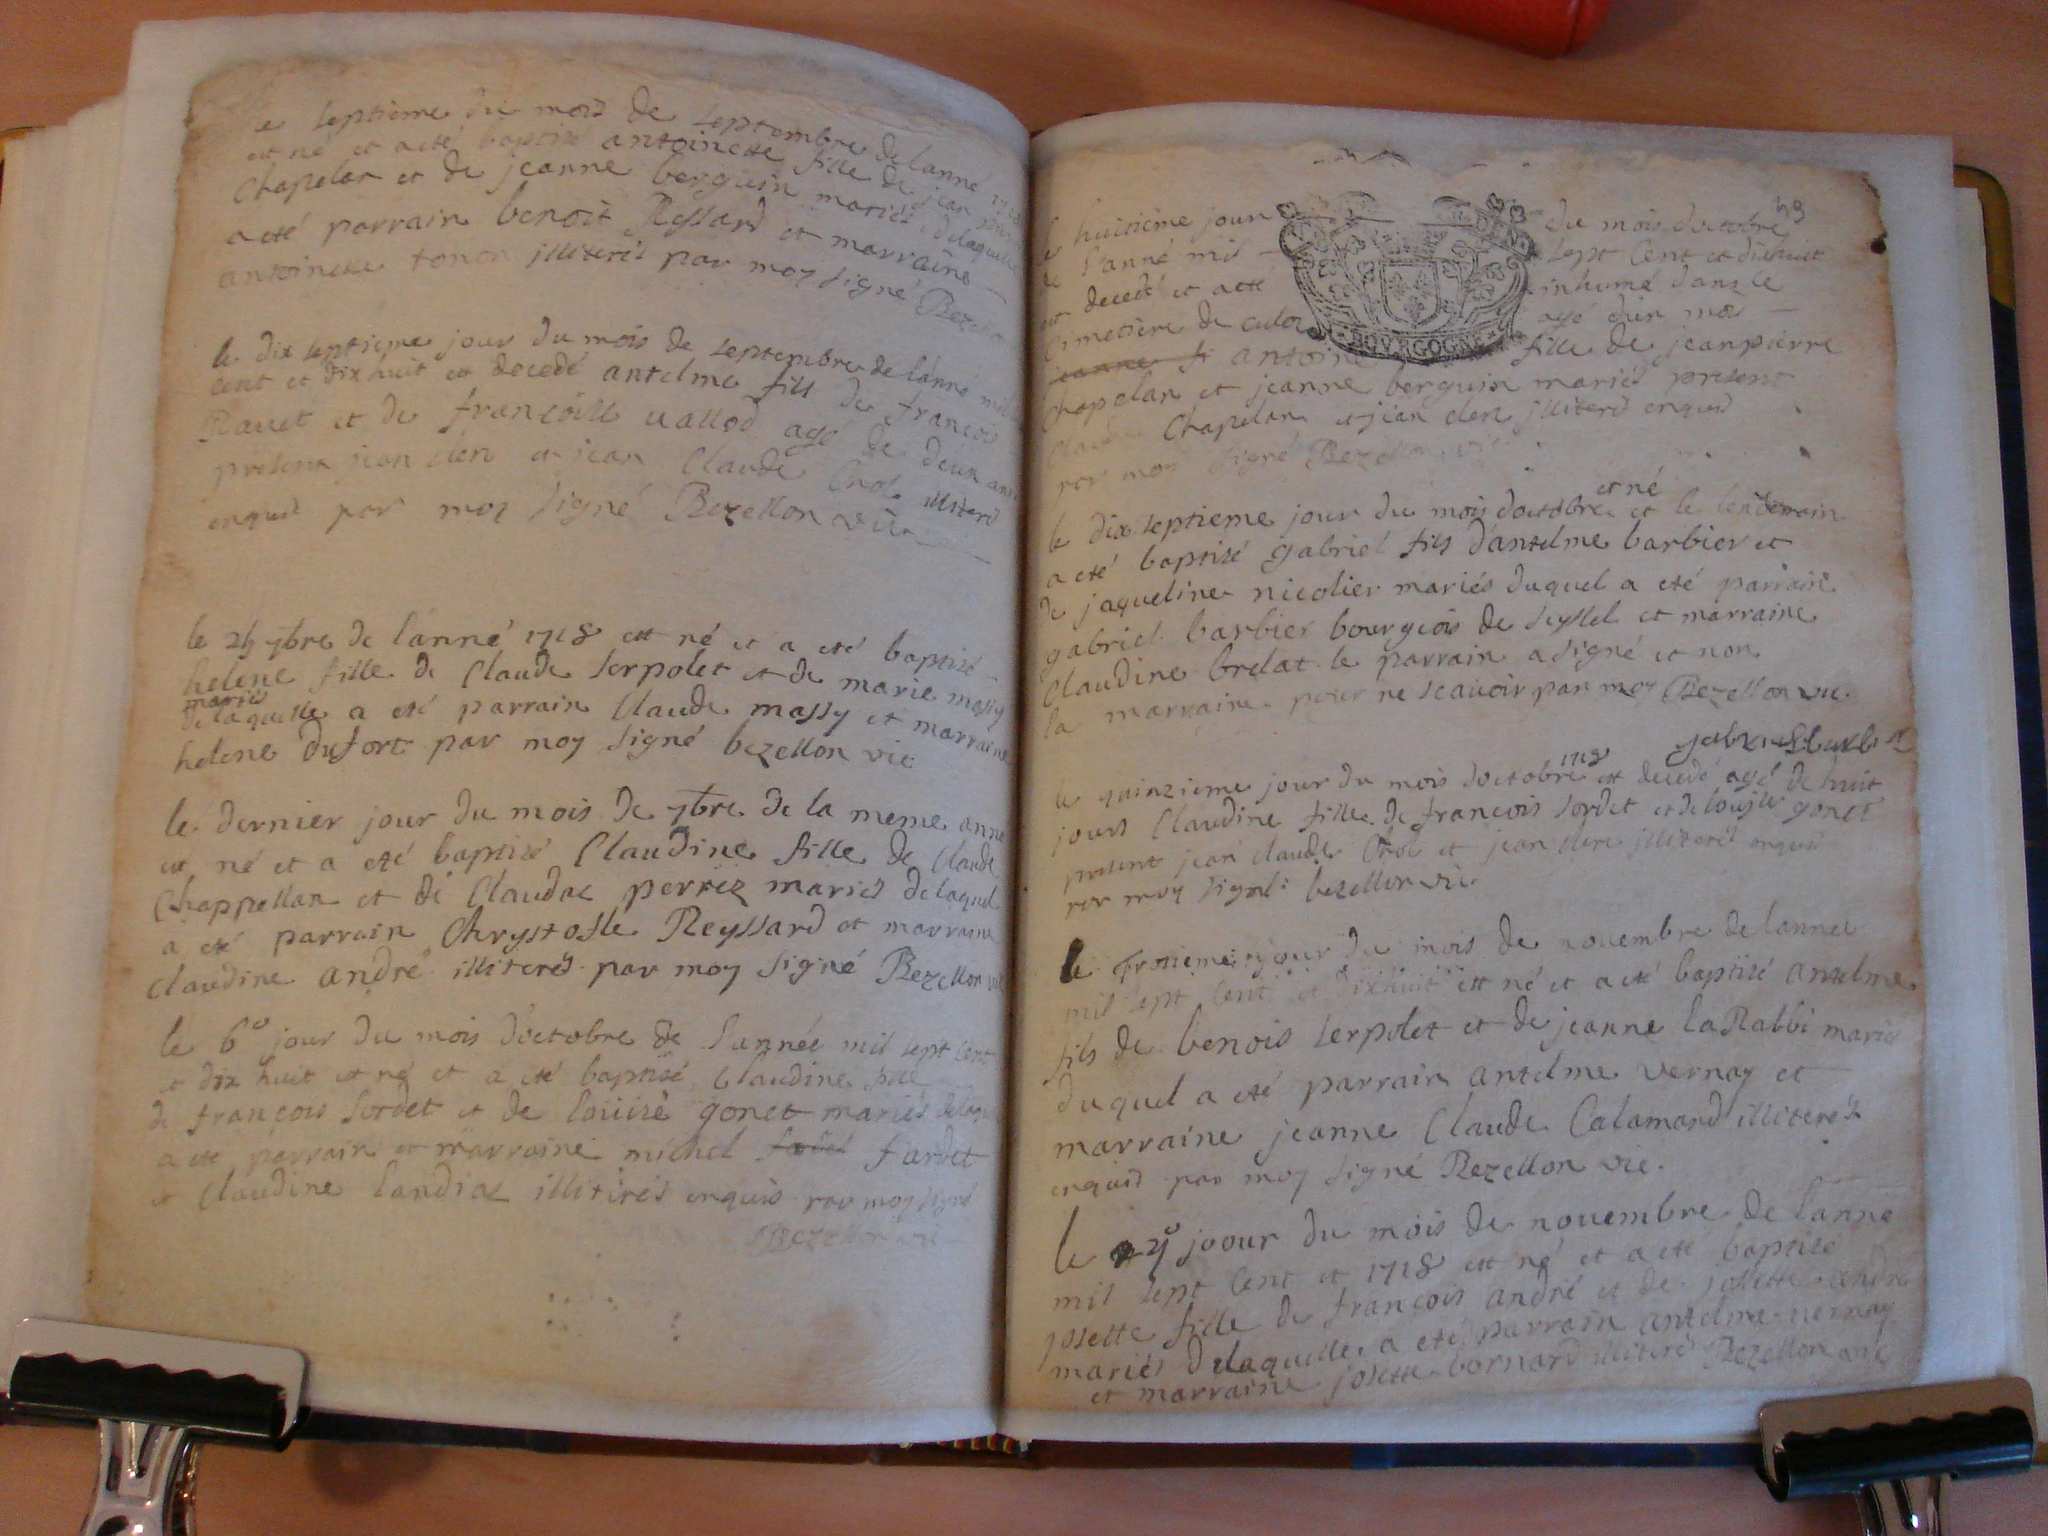 le septieme du mois de septembre de lanné
est né et a eté baptisé antoinette fille de jean
Chapelan et de jeanne berguin mariés delaquelle
a eté parrain benoit Reyssard et marraine
antoinette tonon illiterés par moy signé
le dix septieme jour du mois de septembre de lanne
cent et dix huit est decedé antelme fils de françois
Ravet et de françoise vallod agé de deux ans
present jean clerc et jean Claude illiterés
enquis par moy signé Bezellon vic
le 24 7bre de l'anné 1718 est né et a eté baptisé
helene fille de Claude serpolet et de marie massy
mariés
delaquelle a eté parrain Claude massy et marraine
helene dufort par moy signé bezellon vic
le dernier jour du mois de 7bre de la meme anne
est né et a eté baptisé Claudine fille de Claude
Chappellan et de Claudae perrez mariés delaquel
a eté parrain Chrystofle Reyssard et marraine
claudine andré illiterés par moy signé Bezellon vic
le 6o jour du mois d'octobre de l'année mil sept cent
et dix huit est né et a eté baptisé Claudine fille
de françois sordet et de loüise gonet mariés
a eté parrain et marraine michel fardet
et Claudine landraz illiterés enquis par moy signé
Bezellon vic
huitieme jour du mois doctobre
de l'anné mil sept Cent et dixhuit
est decedé et a eté inhumé dans le
Cimetiere de culoz agé d'un mois
BOURGOGNE
jeanne fi antoine fille de jeanpierre
Chapelan et jeanne berguin mariés present
Claude Chapelan et jean clerc illiterés enquis
par moy signé Bezellon vic
et né
le dix septieme jour du mois doctobre et le lendemain
a eté baptisé gabriel fils d'antelme barbier et
de jaqueline nicolier mariés duquel a eté parrain
gabriel barbier bourgeois de seyssel et marraine
Claudine brelat le parrain a signé et non
la marraine pour ne scavoir par moy Bezellon vic
1718
le quinzieme jour du mois doctobre est decedé agé de huit
jours Claudine fille de francois sordet et de louise gonet
present jean claude et jean clerc illiterés enquis
par moy signé bezellon vic
le troisieme jour du mois de novembre de lannee
mil sept cent et dixhuit est né et a eté baptisé antelme
fils de benois serpolet et de jeanne laRabbi mariés
duquel a eté parrain antelme vernay et
marraine jeanne Claude Calamard illiterés
enquis par moy signé Bezellon vic
le jour du mois de novembre de l'anné
mil sept Cent et 1718 est né et a eté baptisé
josette fille de francois andré et de josette andre
mariés delaquelle a eté parrain antelme vernay
et marraine josette bornard illiteré Bezellon vic